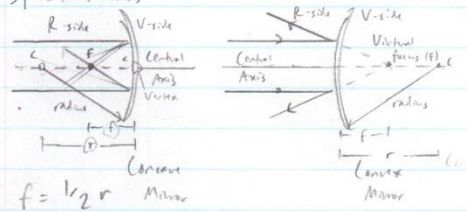 R-side V-side
C F c Central
Axis
Vertex
radius
f
r
Concave
Mirror
f = 1/2 r
R-side V-side
Virtual
focus (f)
Central
Axis
C
radius
f
r
Convex
Mirror